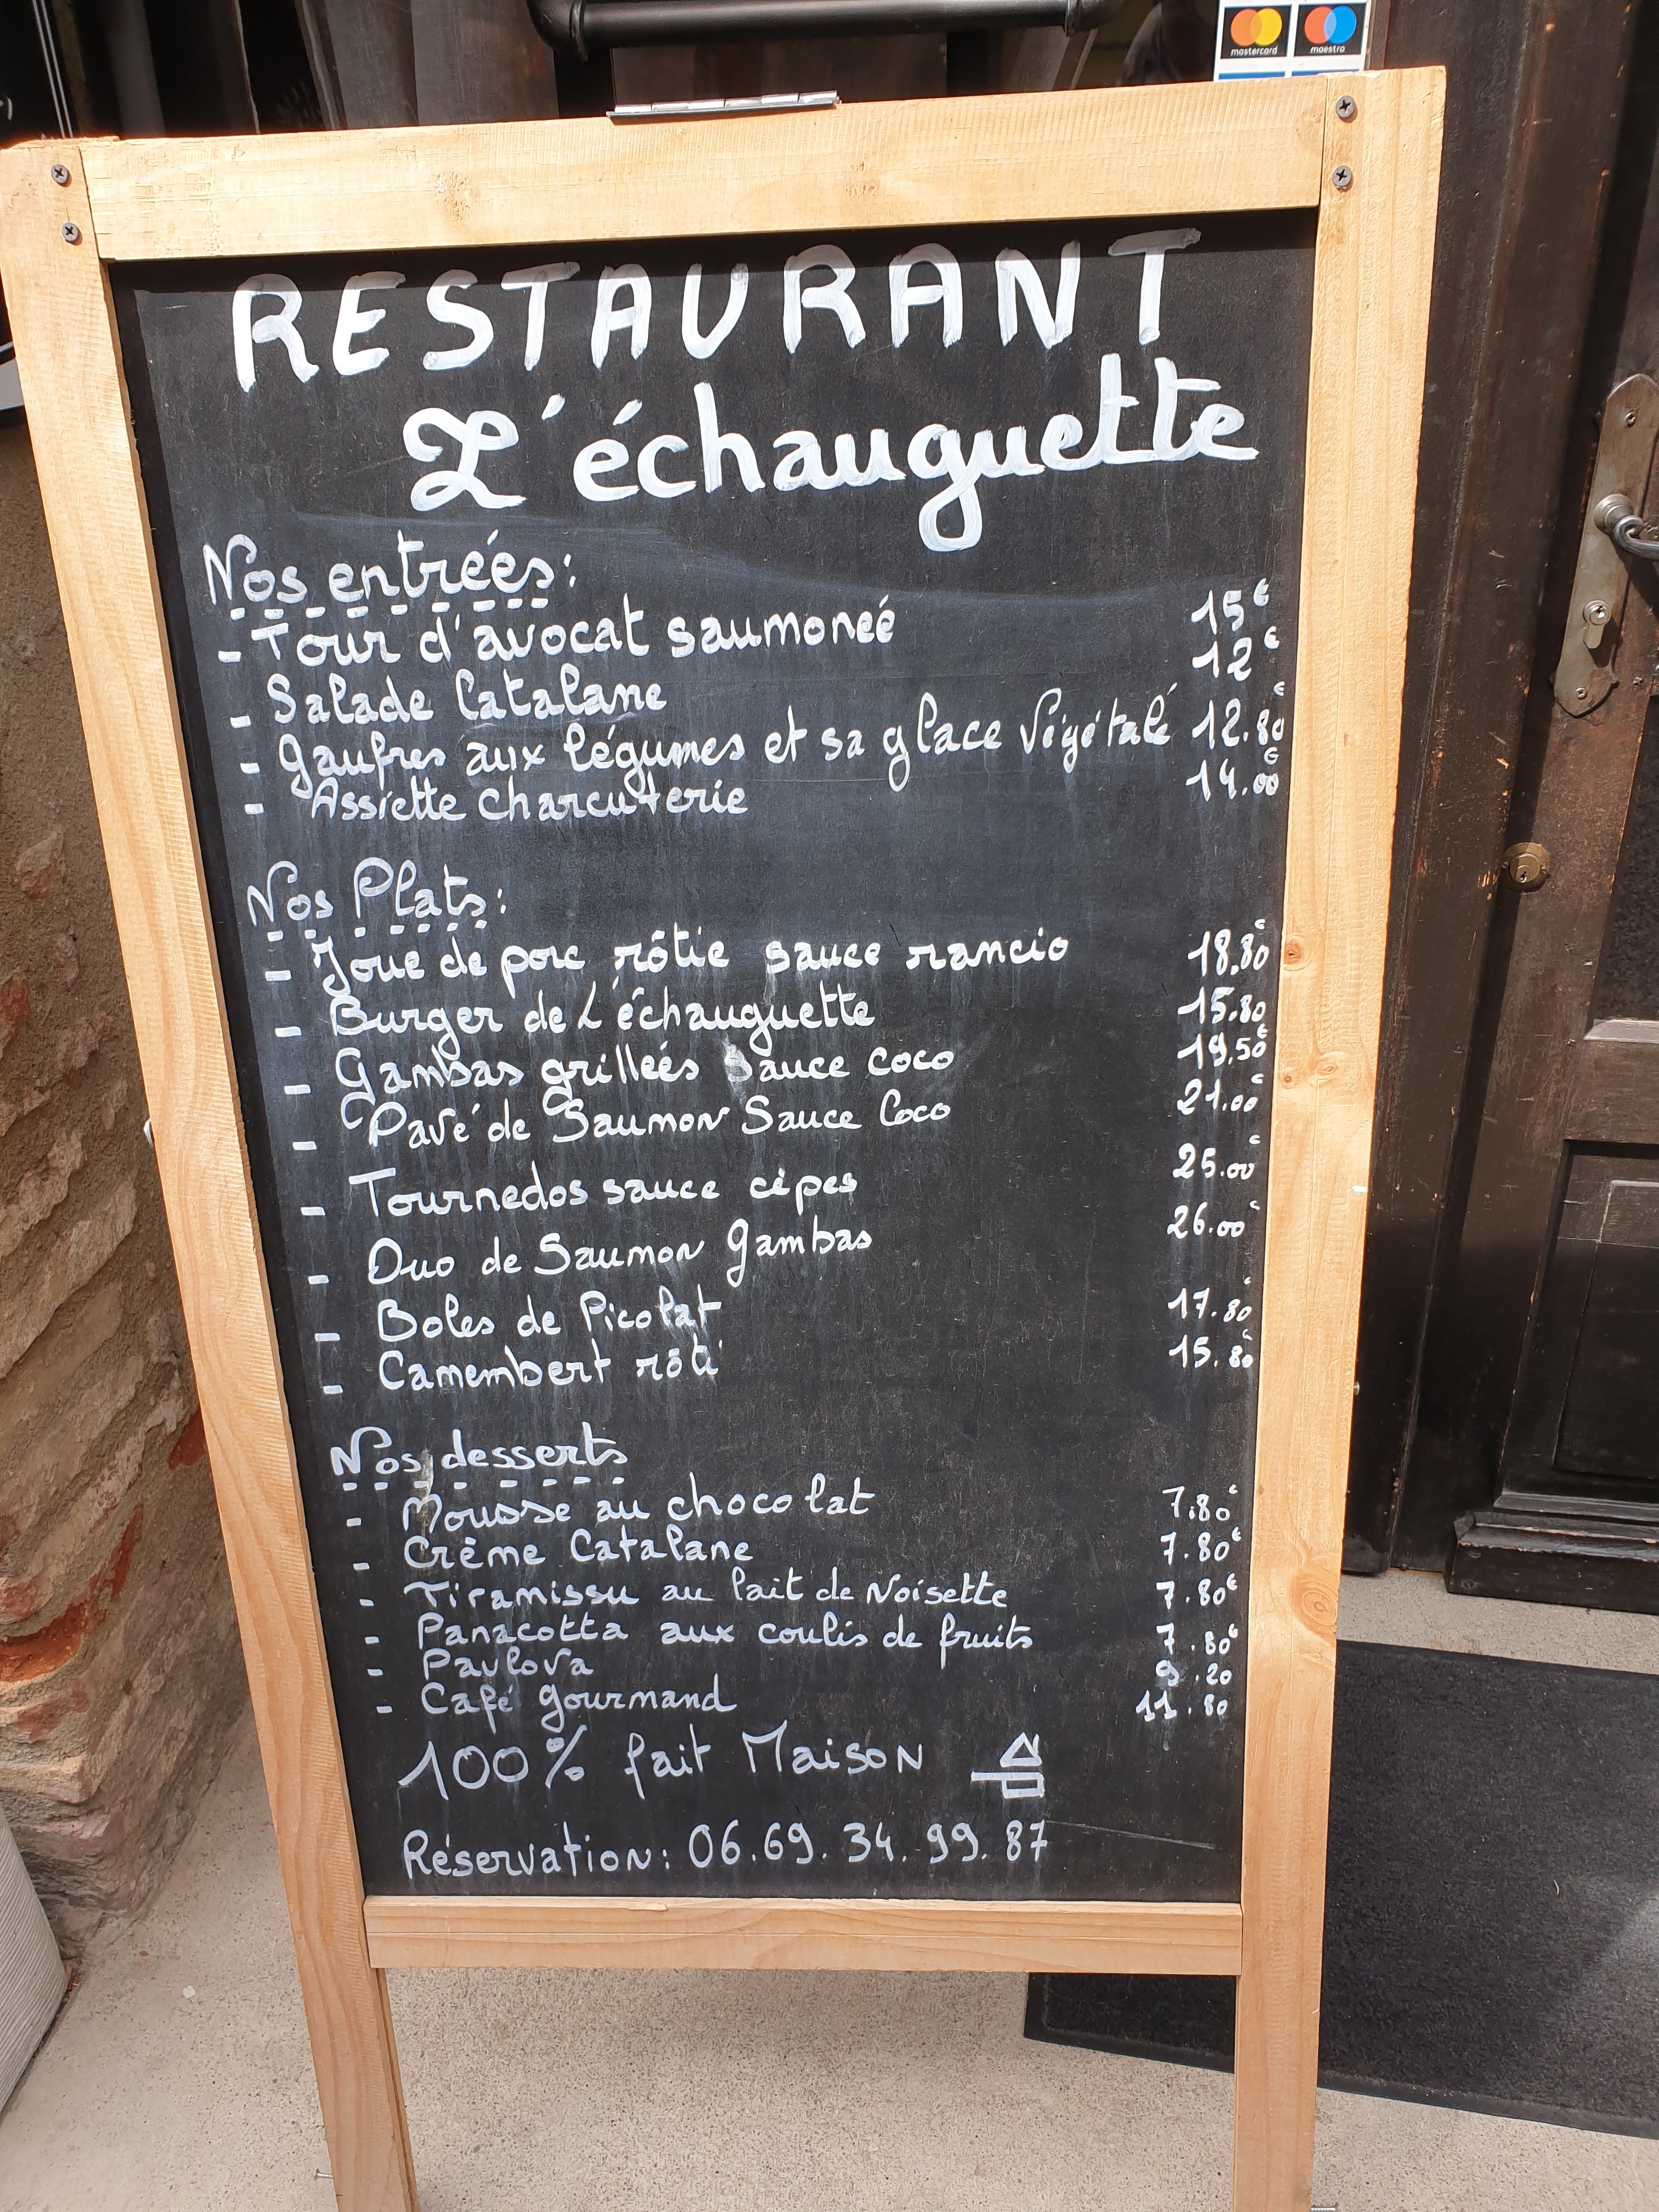 mastercard maestro
RESTAURANT
L'échauguette
Nos entrées:
- Tour d'avocat saumoneé 15€
- Salade Catalane 12€
- Gaufres aux légumes et sa glace Végétale 12.80€
- Assiette Charcuterie 14.00€
Nos Plats:
- Joue de porc rôtie sauce rancio 18.80€
- Burger de L'échauguette 15.80
- Gambas grilleés Sauce coco 19.50€
- Pavé de Saumon Sauce Coco 21.00€
- Tournedos sauce cèpes 25.00€
- Duo de Saumon Gambas 26.00€
- Boles de Picolat 17.80€
- Camembert rôti 15.80€
Nos desserts
- Mousse au chocolat 7.80€
- Crème Catalane 7.80€
- Tiramissu au lait de Noisette 7.80€
- Panacotta aux coulis de fruits 7.80€
- Pavlova 9.20
- Café gourmand 11.80
100% fait Maison
Réservation: 06.69.34.99.87